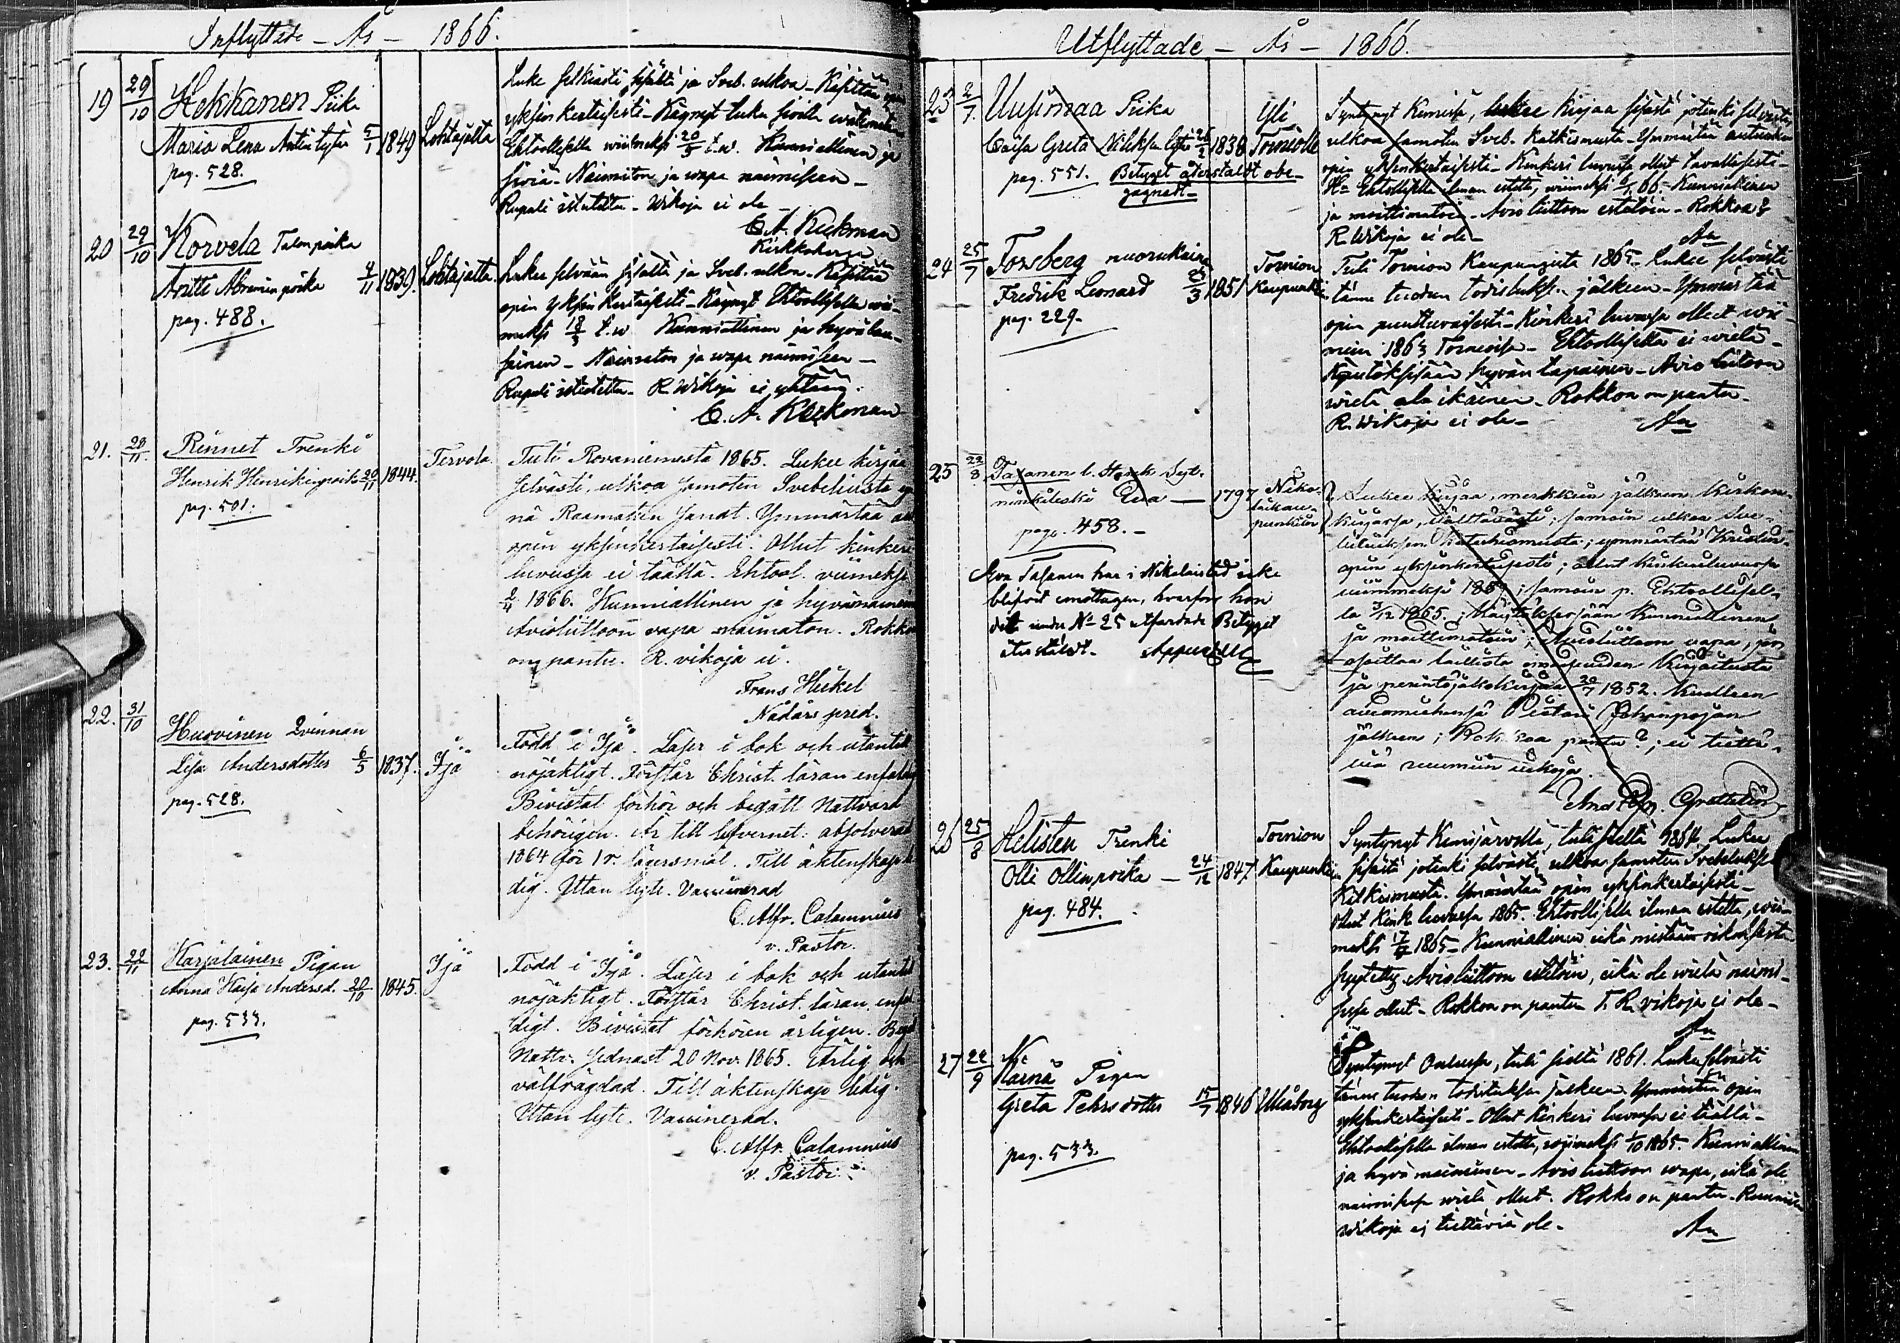 Inflyttade – År – 1866.
19 29/10 Hekkanen Piika
Maria Lena Antintytär 5/1 1849 Lohtajalta
pag. 528.
Luke selkiästi sisältä ja Sveb. ulkoa – Käsittää
yksinkertaisesti – Käynyt luku
Ehtoollisella viimeksi 20/5 t.w. Kunniallinen ja
siviä – Naimaton ja wapa naimiseen –
Rupuli istutettu – Wikoja ei ole –
C. A. Keckman
Kirkkoherra
20 29/10 Korvela Talonpoika
Antti Abramin poika 4/11 1839. Lohtajalta
pag. 488.
Lukee selvään sisältä ja Sveb. ulkoa – Käsittää
opin yksinkertaisesti – Käynyt Ehtoollisella wii-
meksi 18/3 t.w. Kunniallinen ja hyvä
Naimaton ja wapa naimiseen –
Rupuli istutettu – R. Wikoja ei yhtään.
C. A. Keckman
21. 28/11. Rinnet Trenki
Henrik Henrikinpoika 20/11 1844. Tervola
pag. 501.
Tuli Rovaniemestä 1865. Lukee kirjaa
selvästi, ulkoa samoten Svebeliusta
nä Raamatun sanat. Ymmärtää
opin yksinkertaisesti. Ollut kinkeri
luvussa ei täällä. Ehtool. viimeksi
2/4 1866. Kunniallinen ja hyvämaineinen
Avioliittoon vapa naimaton. Rokko
on pantu. R. vikoja ei.
Frans Heikel
Nådårs pred.
22. 31/10 Huovinen Qvinnan
Lisa Andersdotter 6/5 1837. Ijo
pag. 528.
Född i Ijo. Läser i bok och utantill
nöjaktigt. Förstår Christ. läran enfaldigt
Bivistat förhör och begått Nattvard
behörigen. Är till lefvernet: absolverad
1864 för 1 r. lägersmål. Till äktenskap le
dig. Utan lyte. Vaccinerad
C. Alfr. Calamnius
v. Pastor.
23. 22/11 Karjalainen Pigan
Anna Kaisa Andersd. 20/10 1845. Ijo
pag. 533.
Född i Ijo. Läser i bok och utantill
nöjaktigt. Förstår Christ. läran enfal
digt. Bivistat förhören årligen. Begått
Nattv. sednast 20 Nov. 1865. Ärlig och
välfrägdad. Till äktenskap ledig.
Utan lyte. Vaccinerad.
C. Alfr. Calamnius
v. Pastor.
Utflyttade – År – 1866.
23 2/7. Uusimaa Piika
Caisa Greta Niilintytär 1838 Yli Torniolle
pag. 551. Betyget återstäldt obe-
gagnadt –
Syntynyt Kemissä, lukee kirjaa sisästä jotenki selvästi
ulkoa samoten Sveb. Katkismusta – Ymmärtää autuuden
opin yksinkertaisesti – Kinkeri luvussa ollut tavallisesti –
Ehtoollisella ilman estettä, viimeksi 66 – Kunniallinen
ja moittimatoin – Avioliittoon estetöin – Rokkoa
R. Wikoja ei ole –
An
24 25/7 Forsberg nuorukainen
Fredrik Leonard 1851 Tornion Kaupunki
pag. 229 –
Tuli Tornion Kaupungista 1865 – Lukee selvästi
tänne tuodun todistuksen jälkeen – Ymmärtää
opin puuttuvaisesti – Kinkeri luvussa ollut wii-
mein 1863 Torniossa – Ehtoollisella ei wielä –
Käytöksessään hyvän tapainen – Avio liittoon
wielä ala ikäinen – Rokkoa on pantu –
R. Wikoja ei ole –
An
25 22/8 Tasanen
Eva — 1797 Niko-
laikau-
punkiin
pag. 458. –
Eva Tasanen har i Nikolaistad icke
blifvit emottagen, hvarföre hon
det under No 25 utfärdade Betyget
återstäldt –
Lukee kirjaa, merkkein jälkeen Kirkon-
kirjassa, välttävästi; samoin ulkoa Sve-
beliuksen Katechismusta; ymmärtää Kristin-
opin yksinkertaisesti; ollut kinkeriluvussa
viimmeksi 1865; samoin p. Ehtoollisel-
la 3/12 1865; Käytöksessään Kunniallinen
ja moittimatoin; Avioliittoon vapa,
osoittaa laillista
ja perintöjakokirjaa 20/7 1852. Kuolleen
aviomiehensä Pietari Johanpojan
jälkeen; Rokkoa pantu?; ei tiettä-
viä ruumiin vikoja.
26 25/8 Helisten Trenki
Olli Ollinpoika – 24/12 1847. Tornion Kaupunki
pag. 484.
Syntynyt Kemijärvellä, tuli sieltä 1864. Lukee
sisästä jotenki selvästi, ulkoa samoten Svebeliuksen
Katkismusta. Ymmärtää opin yksinkertaisesti –
Ollut Kink. luvussa 1865 – Ehtoollisella ilman estettä, wii-
meksi 1865 – Kunniallinen eikä mistään rikoksesta
syytetty. Avioliittoon estetöin, eikä ole wielä naimi-
sissa ollut – Rokkoa on pantu. R. vikoja ei ole –
An
27 22/9 Kärnä Pigan
Greta Pehrsdotter 15/7 1846 Uleåborg
pag. 533.
Syntynyt Oulussa, tuli sieltä 1861. Lukee selvästi
tänne tuodun todistuksen jälkeen. Ymmärtää opin
yksinkertaisesti – Ollut Kinkeri luvussa ei täällä –
Ehtoollisella ilman estettä, viimeksi 1/10 1865 – Kunniallinen
ja hyvä maineinen – Avioliittoon wapa, eikä ole
naimisissa wielä ollut. Rokko on pantu – Ruumiin
wikoja ei tiettäviä ole –
An